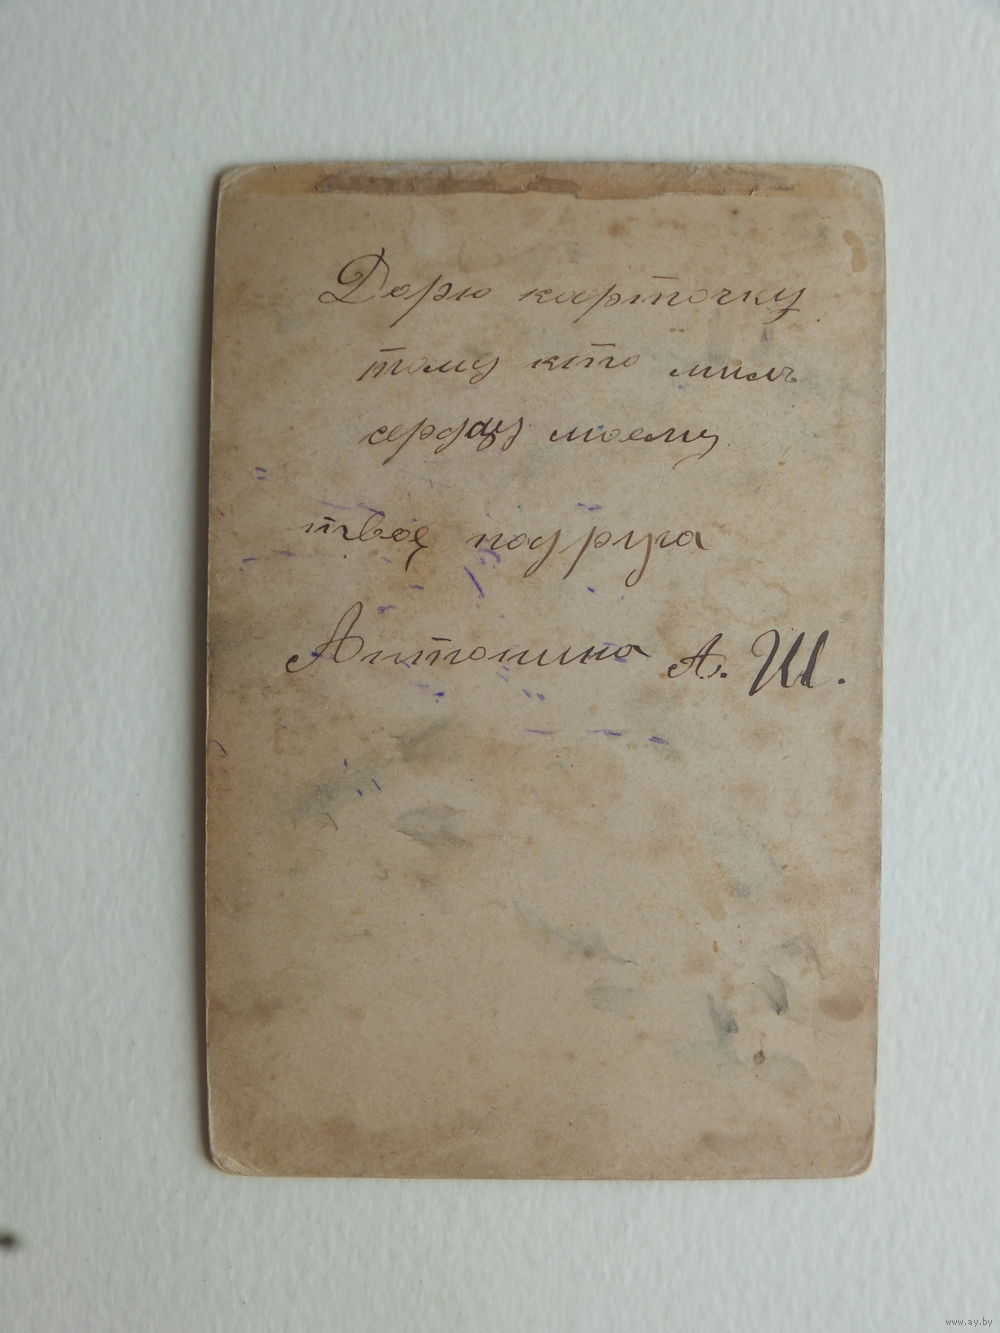 Дорю карточку
тому кто милъ
сердцу моему
твоя подруга
Антонина А. Ш.
www.ay.by